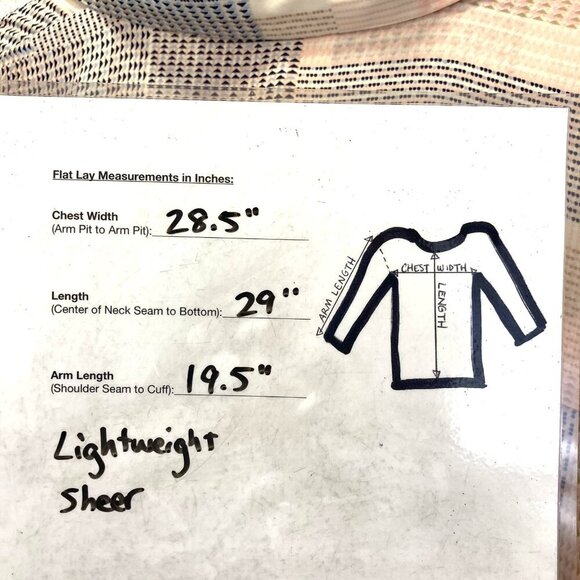 Flat Lay Measurements in Inches:
Chest Width
(Arm Pit to Arm Pit): 28.5"
Length
(Center of Neck Seam to Bottom): 29"
Arm Length
(Shoulder Seam to Cuff): 19.5"
Lightweight
Sheer
ARM LENGTH
CHEST WIDTH
LENGTH